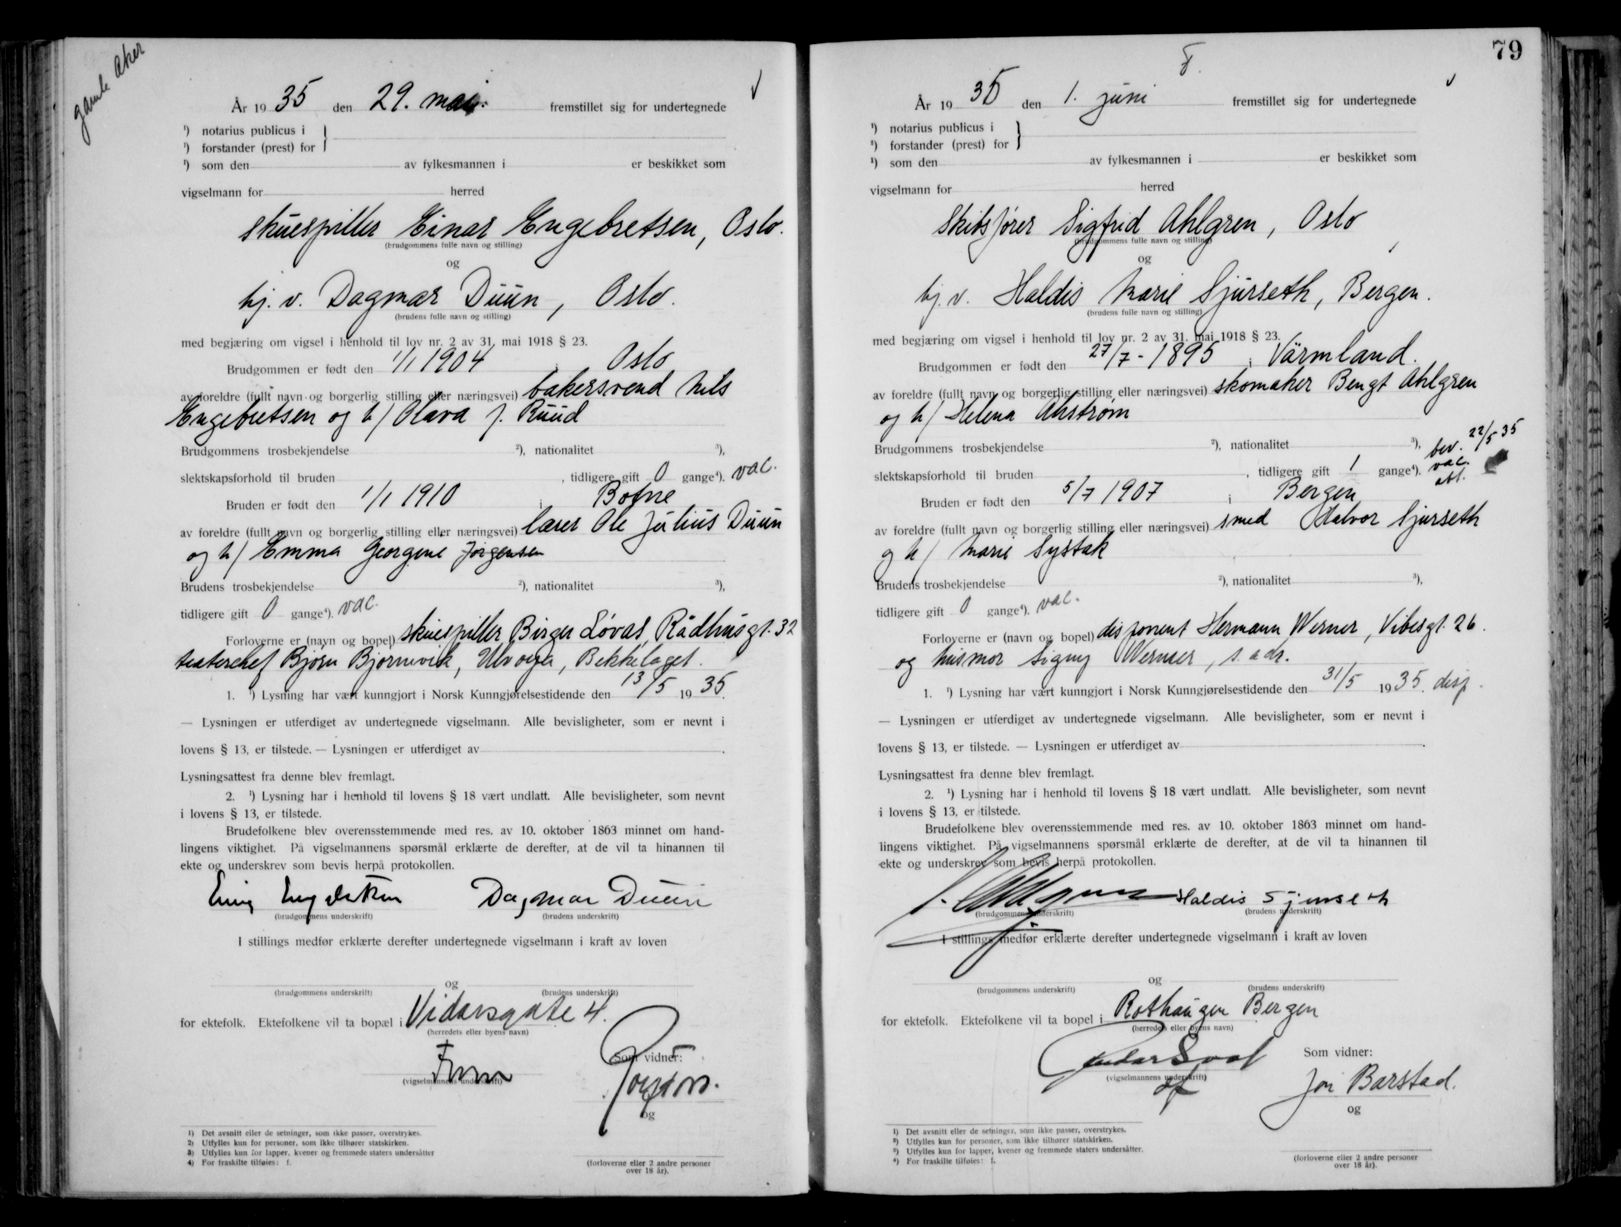 gamle Aker
År 1935 den 29. mai. fremstillet sig for undertegnede
¹) notarius publicus i }
¹) forstander (prest) for
¹) som den av fylkesmannen i er beskikket som
vigselmann for herred
skuespiller Einar Engebretsen, Oslo.
(brudgommens fulle navn og stilling)
og
hj. v. Dagmar Duun, Oslo.
(brudens fulle navn og stilling)
med begjæring om vigsel i henhold til lov nr. 2 av 31. mai 1918 § 23.
Brudgommen er født den 1/1 1904 i Oslo
av foreldre (fullt navn og borgerlig stilling eller næringsvei) bakersvend Nils
Engebretsen og h/ Olava f. Ruud
Brudgommens trosbekjendelse ²), nationalitet ³),
slektskapsforhold til bruden , tidligere gift 0 gange⁴). vac.
Bruden er født den 1/1 1910 i Botne
av foreldre (fullt navn og borgerlig stilling eller næringsvei) lærer Ole Julius Duun
og h/ Emma Georgine Jørgensen
Brudens trosbekjendelse ²), nationalitet ³),
tidligere gift 0 gange⁴). vac.
Forloverne er (navn og bopel) skuespiller Birger Løvås, Rådhusgt. 32
teaterchef Bjørn Bjørnevik, Ulvøya, Bekkelaget.
1. ¹) Lysning har vært kunngjort i Norsk Kunngjørelsestidende den 13/5 1935.
— Lysningen er utferdiget av undertegnede vigselmann. Alle bevisligheter, som er nevnt i
lovens § 13, er tilstede. — Lysningen er utferdiget av .
Lysningsattest fra denne blev fremlagt.
2. ¹) Lysning har i henhold til lovens § 18 vært undlatt. Alle bevisligheter, som nevnt
i lovens § 13, er tilstede.
Brudefolkene blev overensstemmende med res. av 10. oktober 1863 minnet om hand-
lingens viktighet. På vigselmannens spørsmål erklærte de derefter, at de vil ta hinannen til
ekte og underskrev som bevis herpå protokollen.
Einar Engebretsen Dagmar Duun
(brudgommens underskrift) (brudens underskrift)
I stillings medfør erklærte derefter undertegnede vigselmann i kraft av loven
og
(brudgommens underskrift) (brudens underskrift)
for ektefolk. Ektefolkene vil ta bopæl i Vidarsgate 4.
(herredets eller byens navn)
Som vidner:
(vigselmannens underskrift)
og
1) Det avsnitt eller de setninger, som ikke passer, overstrykes.
2) Utfylles kun for personer, som ikke tilhører statskirken.
3) Utfylles kun for lapper, kvener og fremmede staters undersåtter
4) For fraskilte tilføies: f.
(forloverne eller 2 andre personer
over 18 år).
79
År 1935 den 1. juni fremstillet sig for undertegnede
¹) notarius publicus i }
¹) forstander (prest) for
¹) som den av fylkesmannen i er beskikket som
vigselmann for herred
Skibsfører Sigfrid Ahlgren, Oslo
(brudgommens fulle navn og stilling)
og
hj. v. Haldis Marie Sjurseth, Bergen.
(brudens fulle navn og stilling)
med begjæring om vigsel i henhold til lov nr. 2 av 31. mai 1918 § 23.
Brudgommen er født den 27/7 - 1895 i Värmland.
av foreldre (fullt navn og borgerlig stilling eller næringsvei) skomaker Bengt Ahlgren
og h/ Helena Ahstrøm
Brudgommens trosbekjendelse ²), nationalitet ³), bev. 22/5 35
slektskapsforhold til bruden , tidligere gift 1 gange⁴). vac. att.
Bruden er født den 5/7 1907 i Bergen
av foreldre (fullt navn og borgerlig stilling eller næringsvei) smed Halvor Sjurseth
og h/ Marie Systak
Brudens trosbekjendelse ²), nationalitet ³),
tidligere gift 0 gange⁴). vac.
Forloverne er (navn og bopel) disponent Hermann Werner, Vibesgt. 26.
og husmor Signy Werner, s. adr.
1. ¹) Lysning har vært kunngjort i Norsk Kunngjørelsestidende den 31/5 1935. disp.
— Lysningen er utferdiget av undertegnede vigselmann. Alle bevisligheter, som er nevnt i
lovens § 13, er tilstede. — Lysningen er utferdiget av .
Lysningsattest fra denne blev fremlagt.
2. ¹) Lysning har i henhold til lovens § 18 vært undlatt. Alle bevisligheter, som nevnt
i lovens § 13, er tilstede.
Brudefolkene blev overensstemmende med res. av 10. oktober 1863 minnet om hand-
lingens viktighet. På vigselmannens spørsmål erklærte de derefter, at de vil ta hinannen til
ekte og underskrev som bevis herpå protokollen.
S. Ahlgren Haldis Sjurseth
(brudgommens underskrift) (brudens underskrift)
I stillings medfør erklærte derefter undertegnede vigselmann i kraft av loven
og
(brudgommens underskrift) (brudens underskrift)
for ektefolk. Ektefolkene vil ta bopel i Rothaugen Bergen
(herredets eller byens navn)
Som vidner:
(vigselmannens underskrift)
Jon Barstad.
og
1) Det avsnitt eller de setninger, som ikke passer, overstrykes.
2) Utfylles kun for personer, som ikke tilhører statskirken.
3) Utfylles kun for lapper, kvener og fremmede staters undersåtter.
4) For fraskilte tilføies: f.
(forloverne eller 2 andre personer
over 18 år).